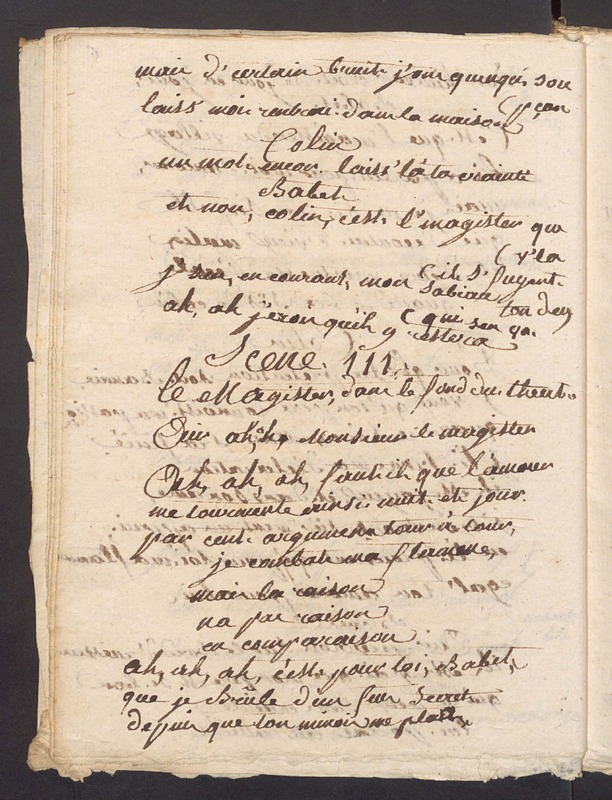 mais d'certain bruit j'ons quenqu' sou
(pçon
laiss' mon renbou dans la maison
Colin
un mot encor laiss' là ta crainte
Babet
eh non, colin, c'est l'magister que
(v'la
(ils s'fuyent.
j' , en courant, mon sabiau ton den
ah, ah j'crois qu'il y restera
(qui s'en va.
Scene III.
le Magister, dans le fond du theat.
Air ah, h, Monsieur le magister
Ah, ah, ah, faut il que l'amour
me tourmente ainsi nuit et jour.
par cent argumens tour à tour,
je combats ma flamme,
mais la raison
na pas raison
en comparaison
ah, ah, ah, c'est pour toi, Babet,
que je Brûle d'un feu Secret
depuis que ton minois me plait.